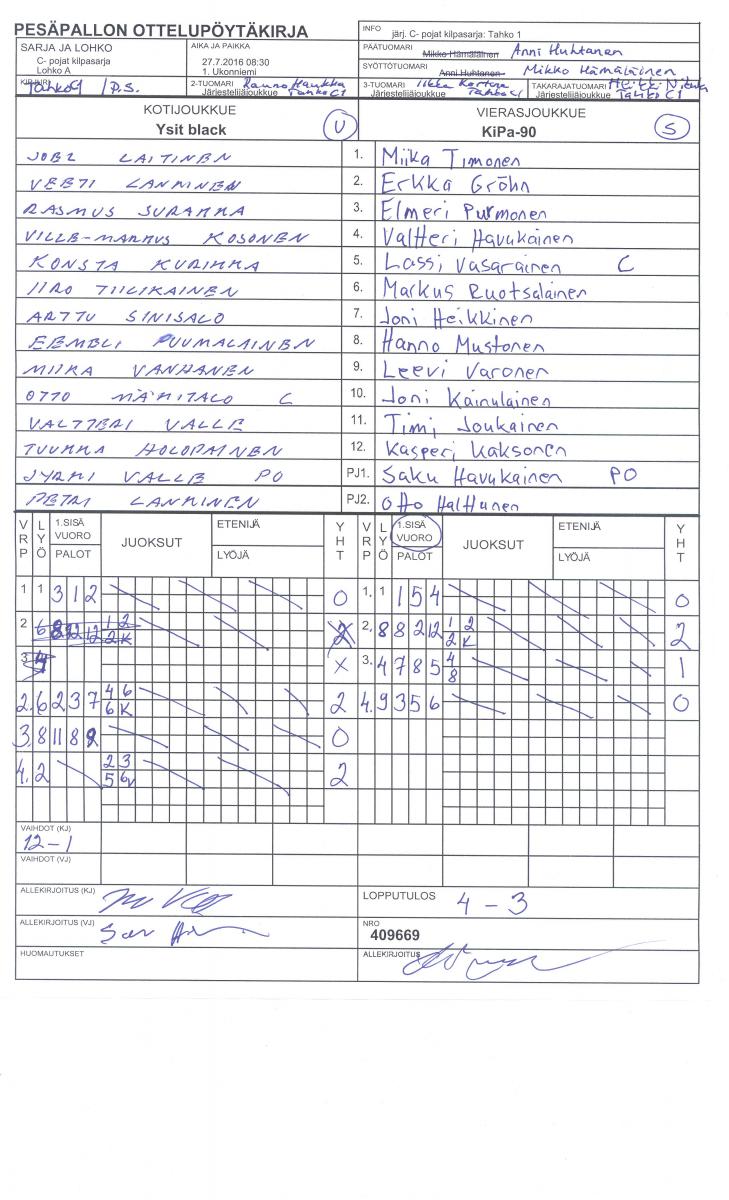 PESÄPALLON OTTELUPÖYTÄKIRJA
INFO järj. C- pojat kilpasarja: Tahko 1
SARJA JA LOHKO
C- pojat kilpasarja
Lohko A
AIKA JA PAIKKA
27.7.2016 08:30
1. Ukonniemi
PÄÄTUOMARI Mikko Hämäläinen Anni Huhtanen
SYÖTTÖTUOMARI Anni Huhtanen Mikko Hämäläinen
KIRJURI / P.S.
2-TUOMARI
Järjestelijäjoukkue Tahko C1
3-TUOMARI Iikka
Järjestelijäjoukkue Tahko C1
TAKARAJATUOMARI Heikki
Järjestelijäjoukkue Tahko C1
KOTIJOUKKUE U VIERASJOUKKUE S
Ysit black KiPa-90
JOEL LAITINEN 1. Miika Timonen
VEETI LANKINEN 2. Erkka Gröhn
RASMUS SURAKKA 3. Elmeri Purmonen
VILLE-MARKUS KOSONEN 4. Valtteri Havukainen
KONSTA KURIKKA 5. Lassi Vasarainen C
IIRO TIILIKAINEN 6. Markus Ruotsalainen
ARTTU SINISALO 7. Joni Heikkinen
EEMELI PUUMALAINEN 8. Hanno Mustonen
MIIKA VANHANEN 9. Leevi Varonen
OTTO MÄKITALO C 10. Joni Kainulainen
VALTTERI VALLE 11. Timi Joukainen
TUUKKA HOLOPAINEN 12. Kasperi Kaksonen
JYRKI VALLE PO PJ1. Saku Havukainen PO
PETRI LANKINEN PJ2. Otto Halttunen
VRP LYÖ 1.SISÄ VUORO PALOT JUOKSUT ETENIJÄ LYÖJÄ YHT VRP LYÖ 1.SISÄ VUORO PALOT JUOKSUT ETENIJÄ LYÖJÄ YHT
1 1 3 1 2 0 1. 1 1 5 4 0
2 6 8 12 12 1 2 2K 2 2. 8 8 2 12 1 2 2K 2
3 4 X 3. 4 7 8 5 4 8 1
2. 6 2 3 7 4 6 6K 2 4. 9 3 5 6 0
3. 8 11 8 9 0
4. 2 2 3 5 6v 2
VAIHDOT (KJ)
12-1
VAIHDOT (VJ)
ALLEKIRJOITUS (KJ) LOPPUTULOS 4 - 3
ALLEKIRJOITUS (VJ) NRO
409669
HUOMAUTUKSET ALLEKIRJOITUS